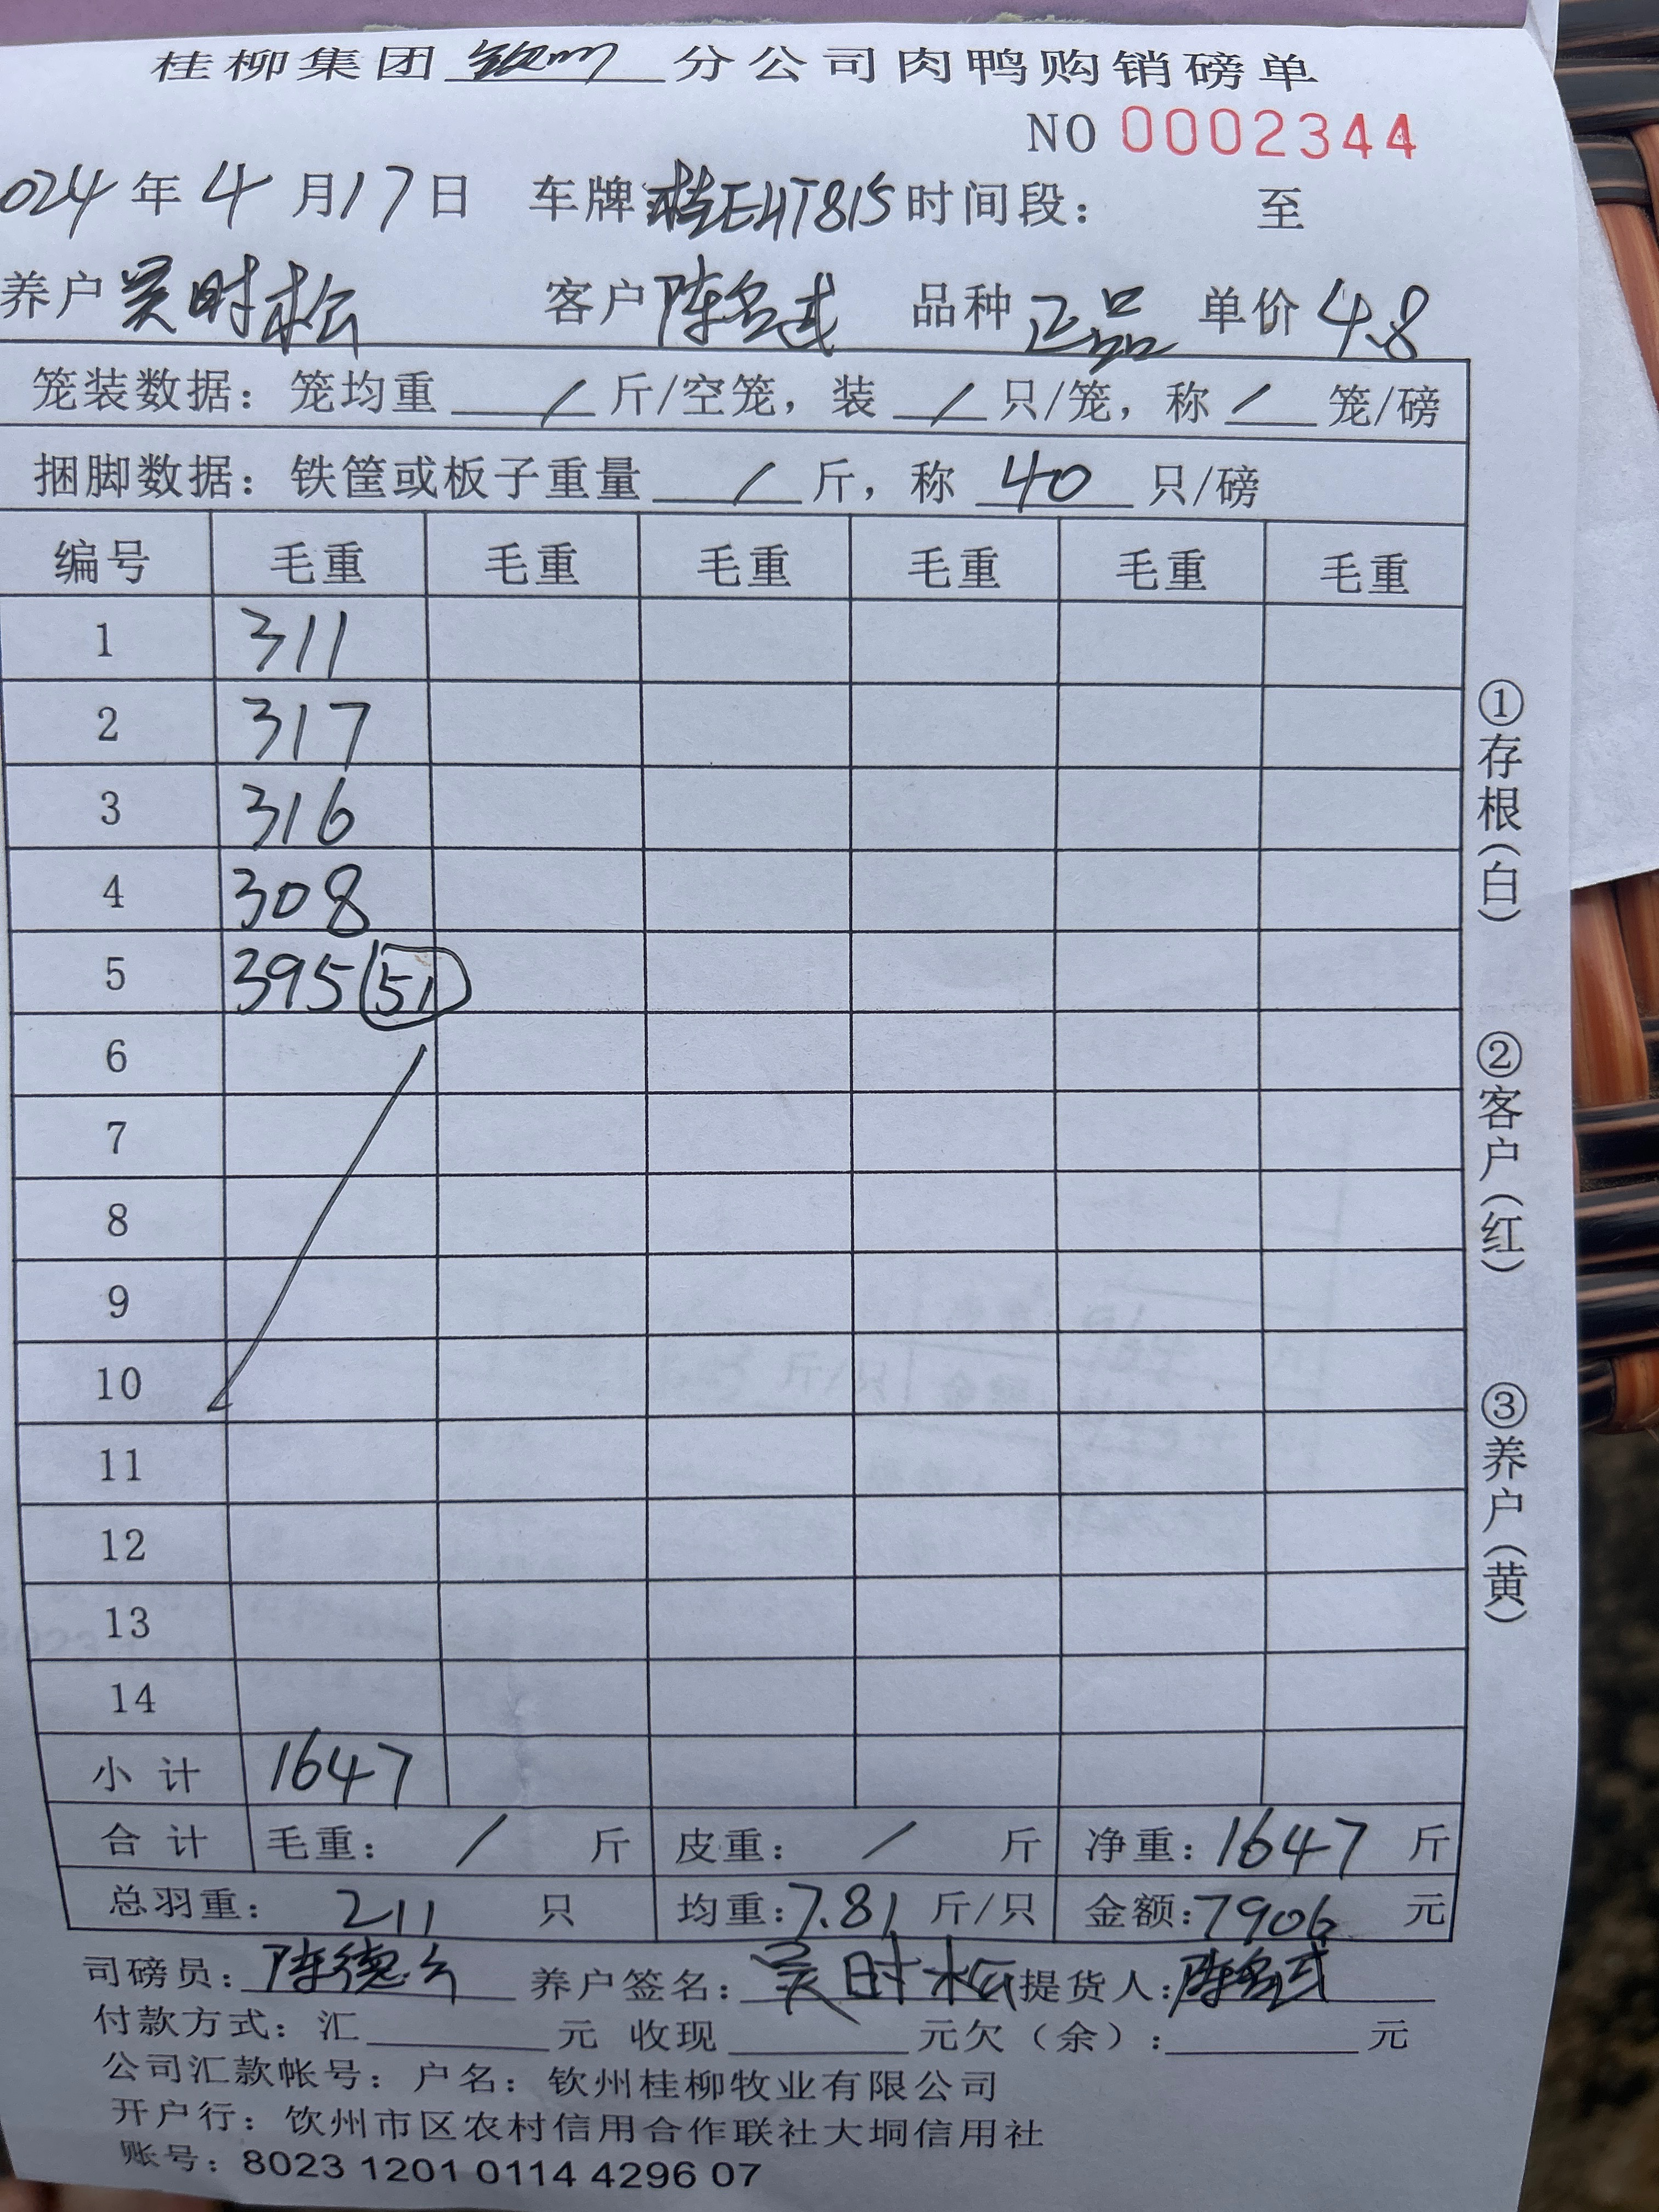 桂柳集团 钦州 分公司肉鸭购销磅单
NO 0002344
024年4月17日 车牌 桂EHT815 时间段： 至
养户 吴时松 客户 陈名武 品种 正品 单价 4.8
笼装数据：笼均重 / 斤/空笼，装 / 只/笼，称 / 笼/磅
捆脚数据：铁筐或板子重量 / 斤，称 40 只/磅
编号 毛重 毛重 毛重 毛重 毛重 毛重
1 311
2 317
3 316
4 308
5 395 51
6
7
8
9
10
11
12
13
14
小计 1647
合计 毛重： / 斤 皮重： / 斤 净重：1647 斤
总羽重： 211 只 均重：7.81 斤/只 金额：7906 元
司磅员：陈德 养户签名：吴时松 提货人：陈名武
付款方式：汇 元 收现 元欠（余）： 元
公司汇款帐号：户名：钦州桂柳牧业有限公司
开户行：钦州市区农村信用合作联社大垌信用社
账号：8023 1201 0114 4296 07
①存根（白）
②客户（红）
③养户（黄）